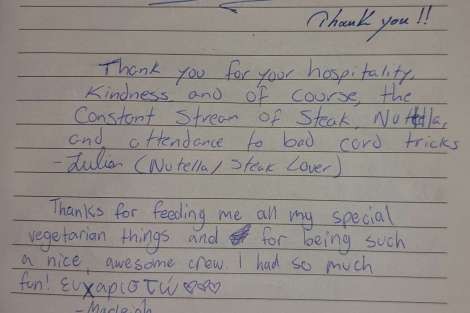 Thank you!!
Thank you for your hospitality,
Kindness and of course, the
Constant Stream of Steak, Nutella,
and attendance to bad card tricks
- Julian (Nutella/Steak Lover)
Thanks for feeding me all my special
vegetarian things and for being such
a nice, awesome crew. I had so much
fun! ευχαριστώ ♡♡♡